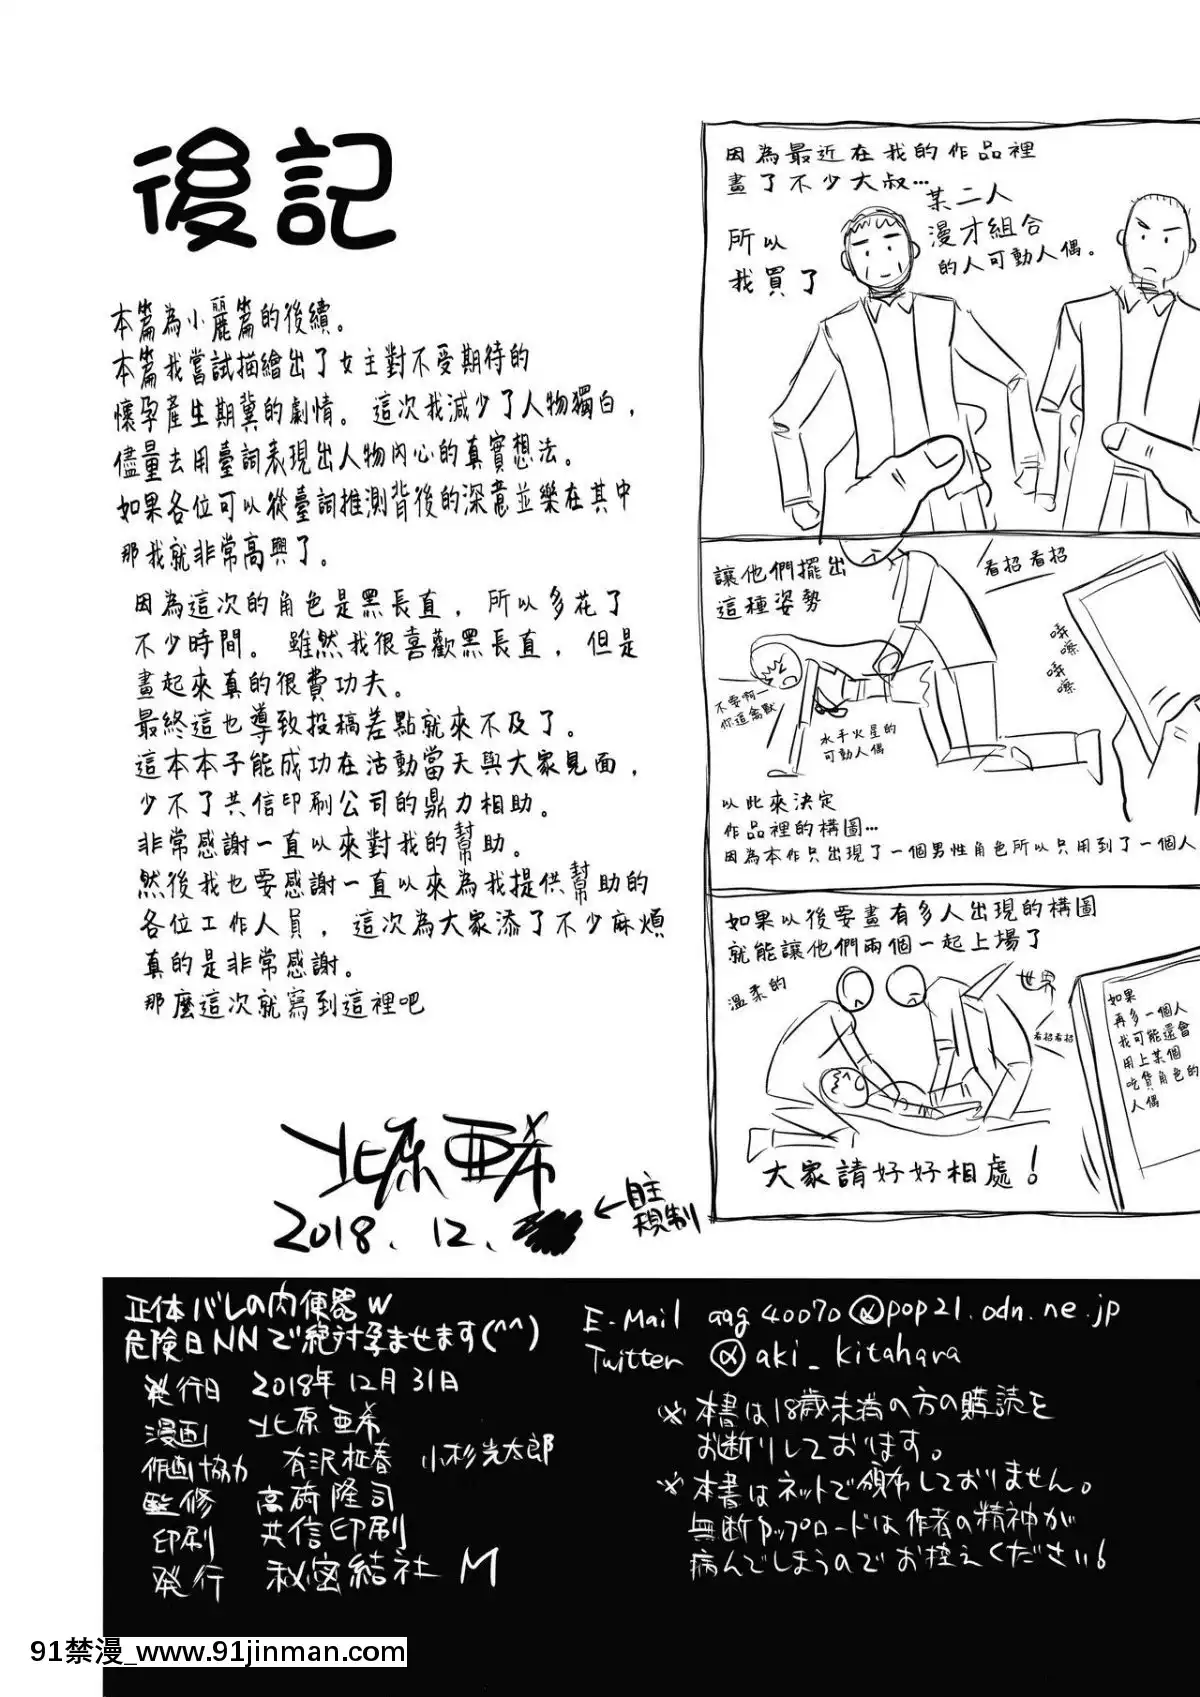 後記
本篇為小麗篇的後續。
本篇我嘗試描繪出了女主對不受期待的
懷孕產生期冀的劇情。這次我減少了人物獨白，
儘量去用臺詞表現出人物內心的真實想法。
如果各位可以從臺詞推測背後的深意並樂在其中
那我就非常高興了。
因為這次的角色是黑長直，所以多花了
不少時間。雖然我很喜歡黑長直，但是
畫起來真的很費功夫。
最終這也導致投稿差點就來不及了。
這本本子能成功在活動當天與大家見面，
少不了共信印刷公司的鼎力相助。
非常感謝一直以來對我的幫助。
然後我也要感謝一直以來為我提供幫助的
各位工作人員，這次為大家添了不少麻煩
真的是非常感謝。
那麼這次就寫到這裡吧
北原亜希
2018.12.
←自主
規制
因為最近在我的作品裡
畫了不少大叔…
所以
我買了
某二人
漫才組合
的人可動人偶。
讓他們擺出
這種姿勢
看招看招
咔嚓
咔嚓
不要啊一
你這禽獸
水手火星的
可動人偶
以此來決定
作品裡的構圖…
因為本作只出現了一個男性角色所以只用到了一個人
如果以後要畫有多人出現的構圖
就能讓他們兩個一起上場了
溫柔的
世界
看招看招
如果
再多一個人
我可能還會
用上某個
吃貨角色的
人偶
大家請好好相處！
正体バレの肉便器w
危険日NNで絶対孕ませます(^^)
発行日 2018年12月31日
漫画 北原亜希
作画協力 有沢柾春 小杉光太郎
監修 高碕隆司
印刷 共信印刷
発行 秘密結社M
E-Mail aag40070@pop21.odn.ne.jp
Twitter @aki_kitahara
※本書は18歳未満の方の購読を
お断りしております。
※本書はネットで頒布しておりません。
無断アップロードは作者の精神が
病んでしまうのでお控えください！
91禁漫_www.91jinman.com